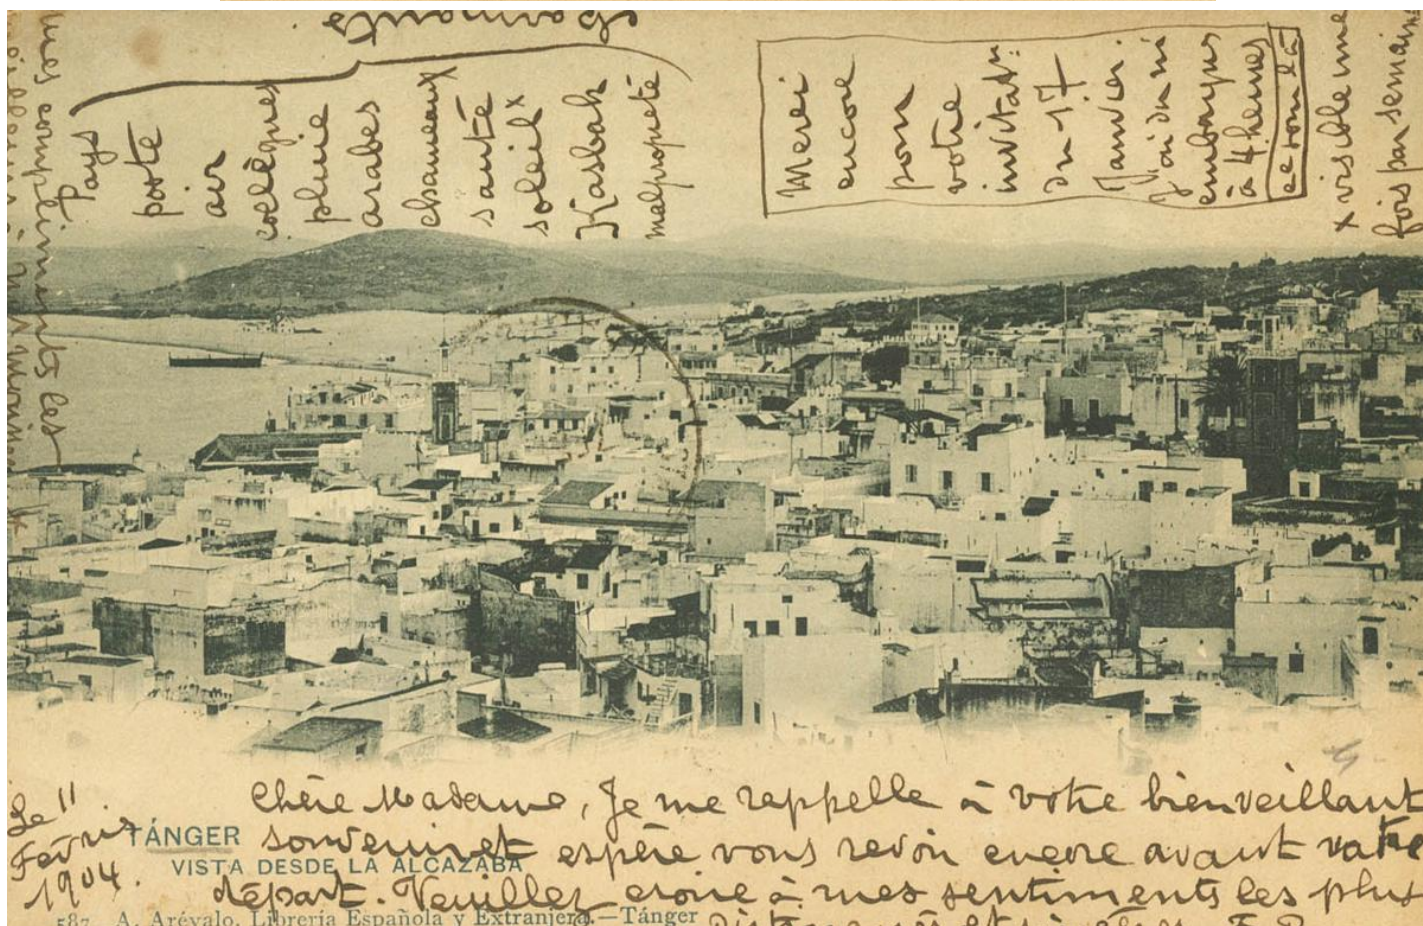 charmants
Pays
poste
air
collègues
pluie
arabes
chameaux
santé
soleil x
Kasbah
malpropreté
Merci
encore
pour
votre
invitatn:
du 17
Janvier.
J'ai du m'
embarquer
à 4 heures
ce jour là
x visible une
fois par semaine
mes compliments les
Le 11
Février
1904.
Chère Madame, Je me rappelle à votre bienveillant
souvenir et espère vous revoir encore avant votre
départ. Veuillez croire à mes sentiments les plus
TÁNGER
VISTA DESDE LA ALCAZABA
587 A. Arévalo, Librería Española y Extranjera.—Tánger